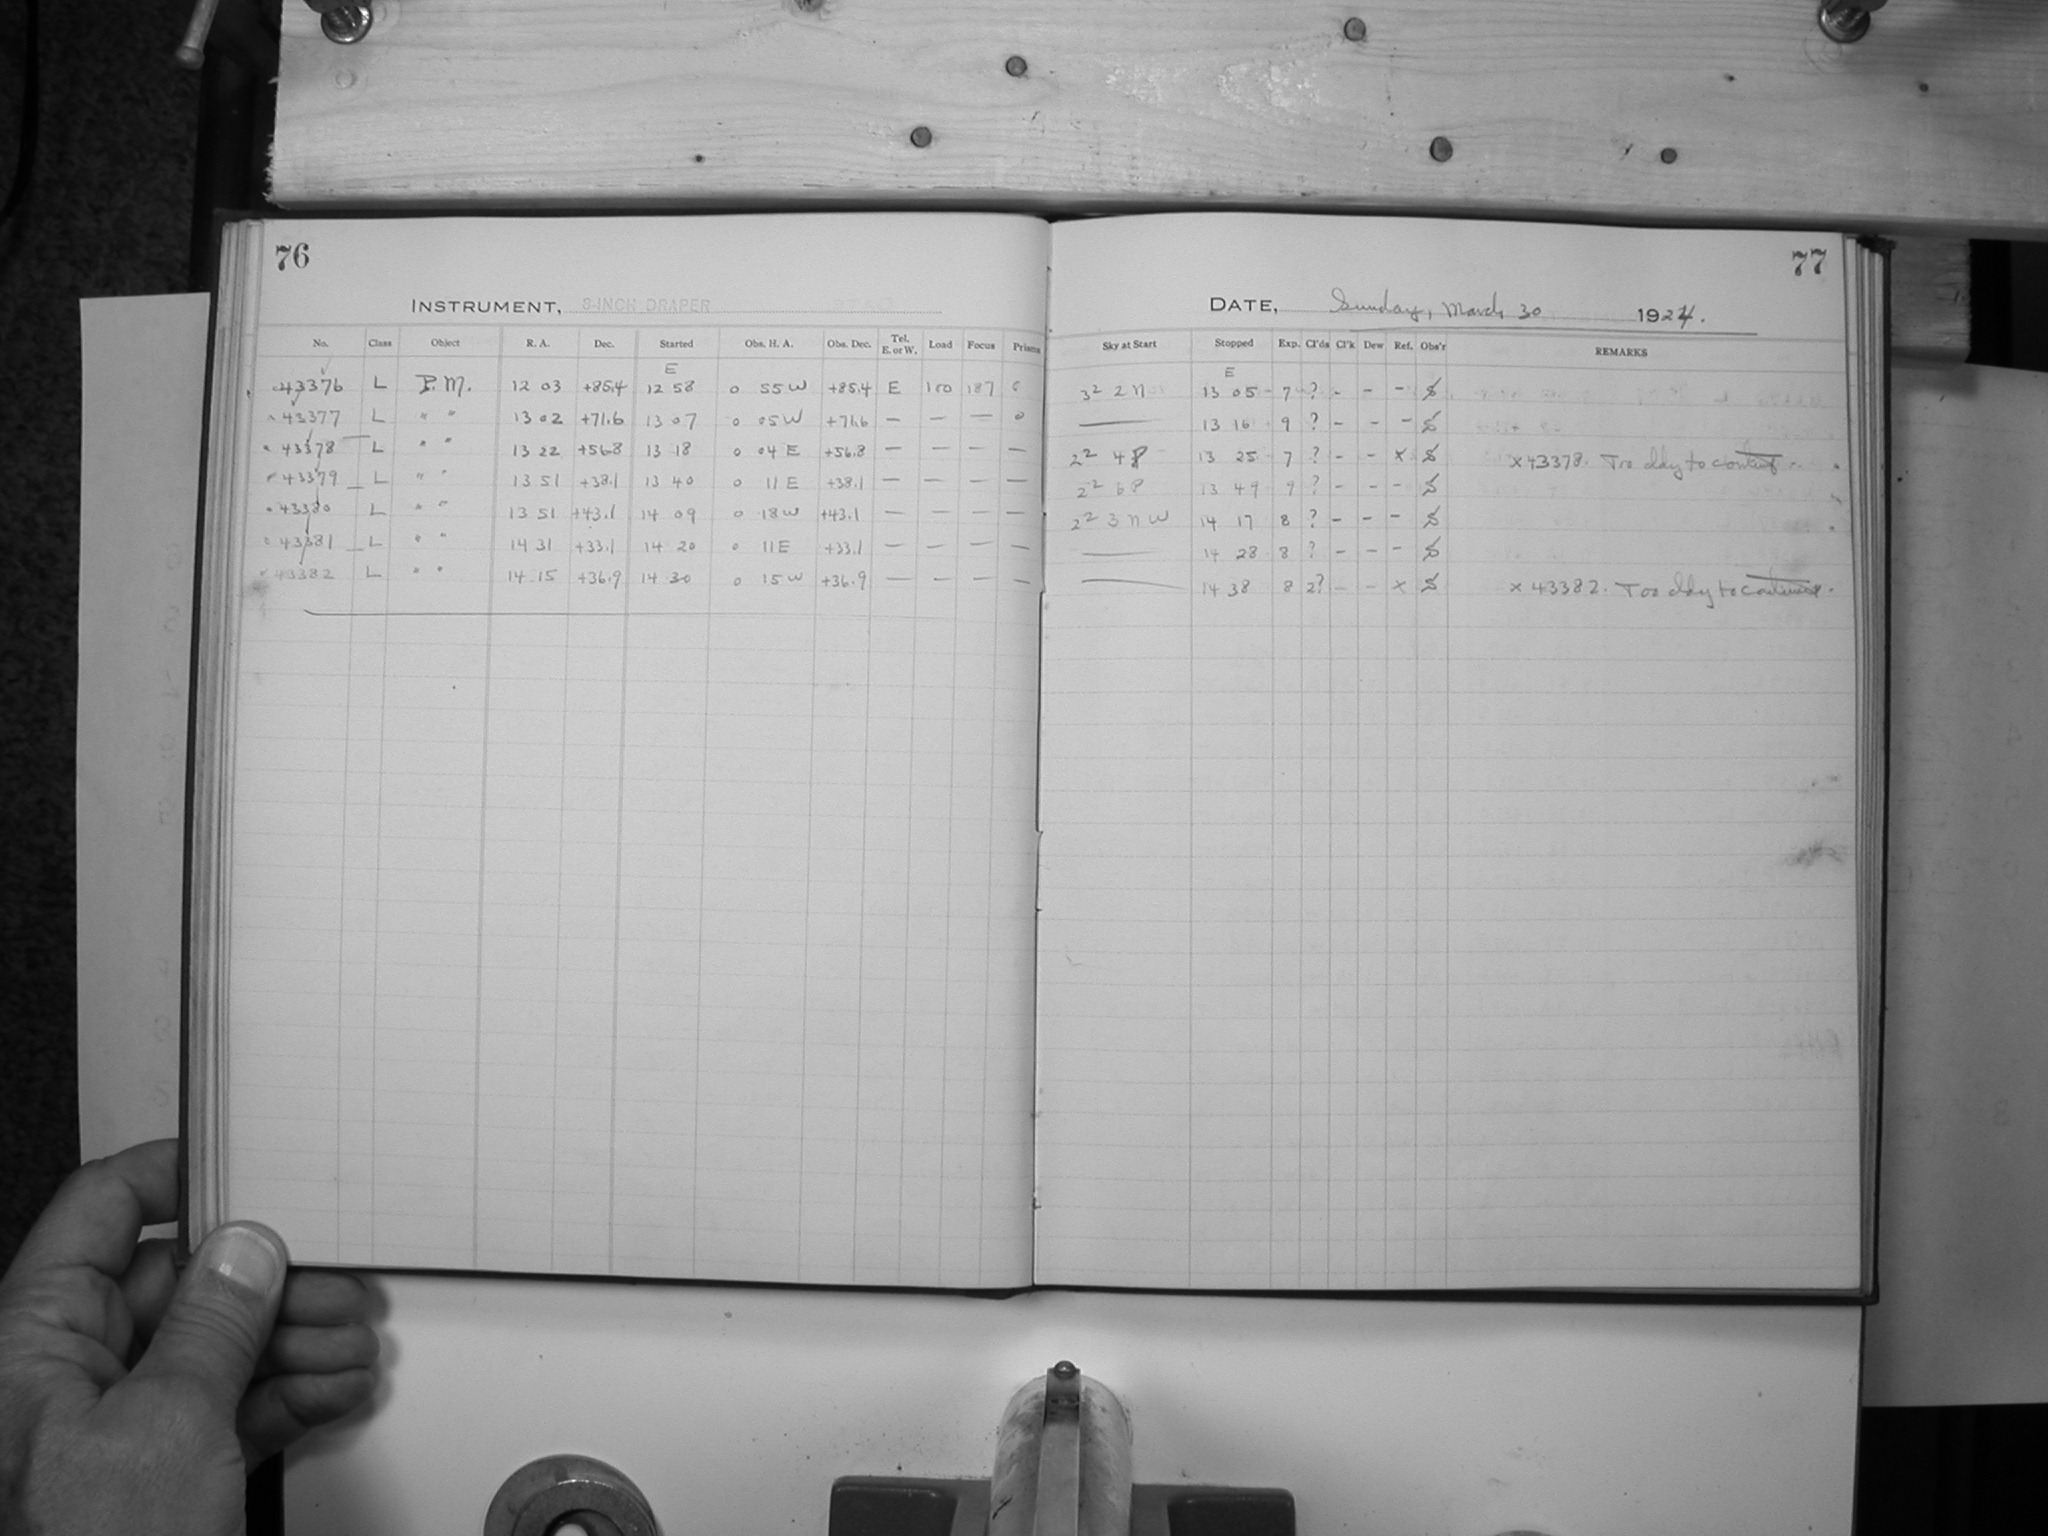 76
INSTRUMENT, 8-INCH DRAPER
No. Class Object R. A. Dec. Started Obs. H. A. Obs. Dec. Tel. E. or W. Load Focus Prisms
E
43376 L P.M. 12 03 +85.4 12 58 0 55 W +85.4 E 100 187 0
43377 L " " 13 02 +71.6 13 07 0 05 W +71.6 — — — 0
43378 L " " 13 22 +56.8 13 18 0 04 E +56.8 — — — —
43379 L " " 13 51 +38.1 13 40 0 11 E +38.1 — — — —
43380 L " " 13 51 +43.1 14 09 0 18 W +43.1 — — — —
43381 L " " 14 31 +33.1 14 20 0 11 E +33.1 — — — —
43382 L " " 14 15 +36.9 14 30 0 15 W +36.9 — — — —
77
DATE, Sunday, March 30 1924.
Sky at Start Stopped Exp. Cl'ds Cl'k Dew Ref. Obs'r REMARKS
E
3² 2 n 13 05 7 ? - - - S
— 13 16 9 ? - - - S
2² 4 8 13 25 7 ? - - x S x 43378. Too
2² 6 8 13 49 9 ? - - - S
2² 3 n W 14 17 8 ? - - - S
— 14 28 8 ? - - - S
— 14 38 8 2? - - x S x 43382. Too